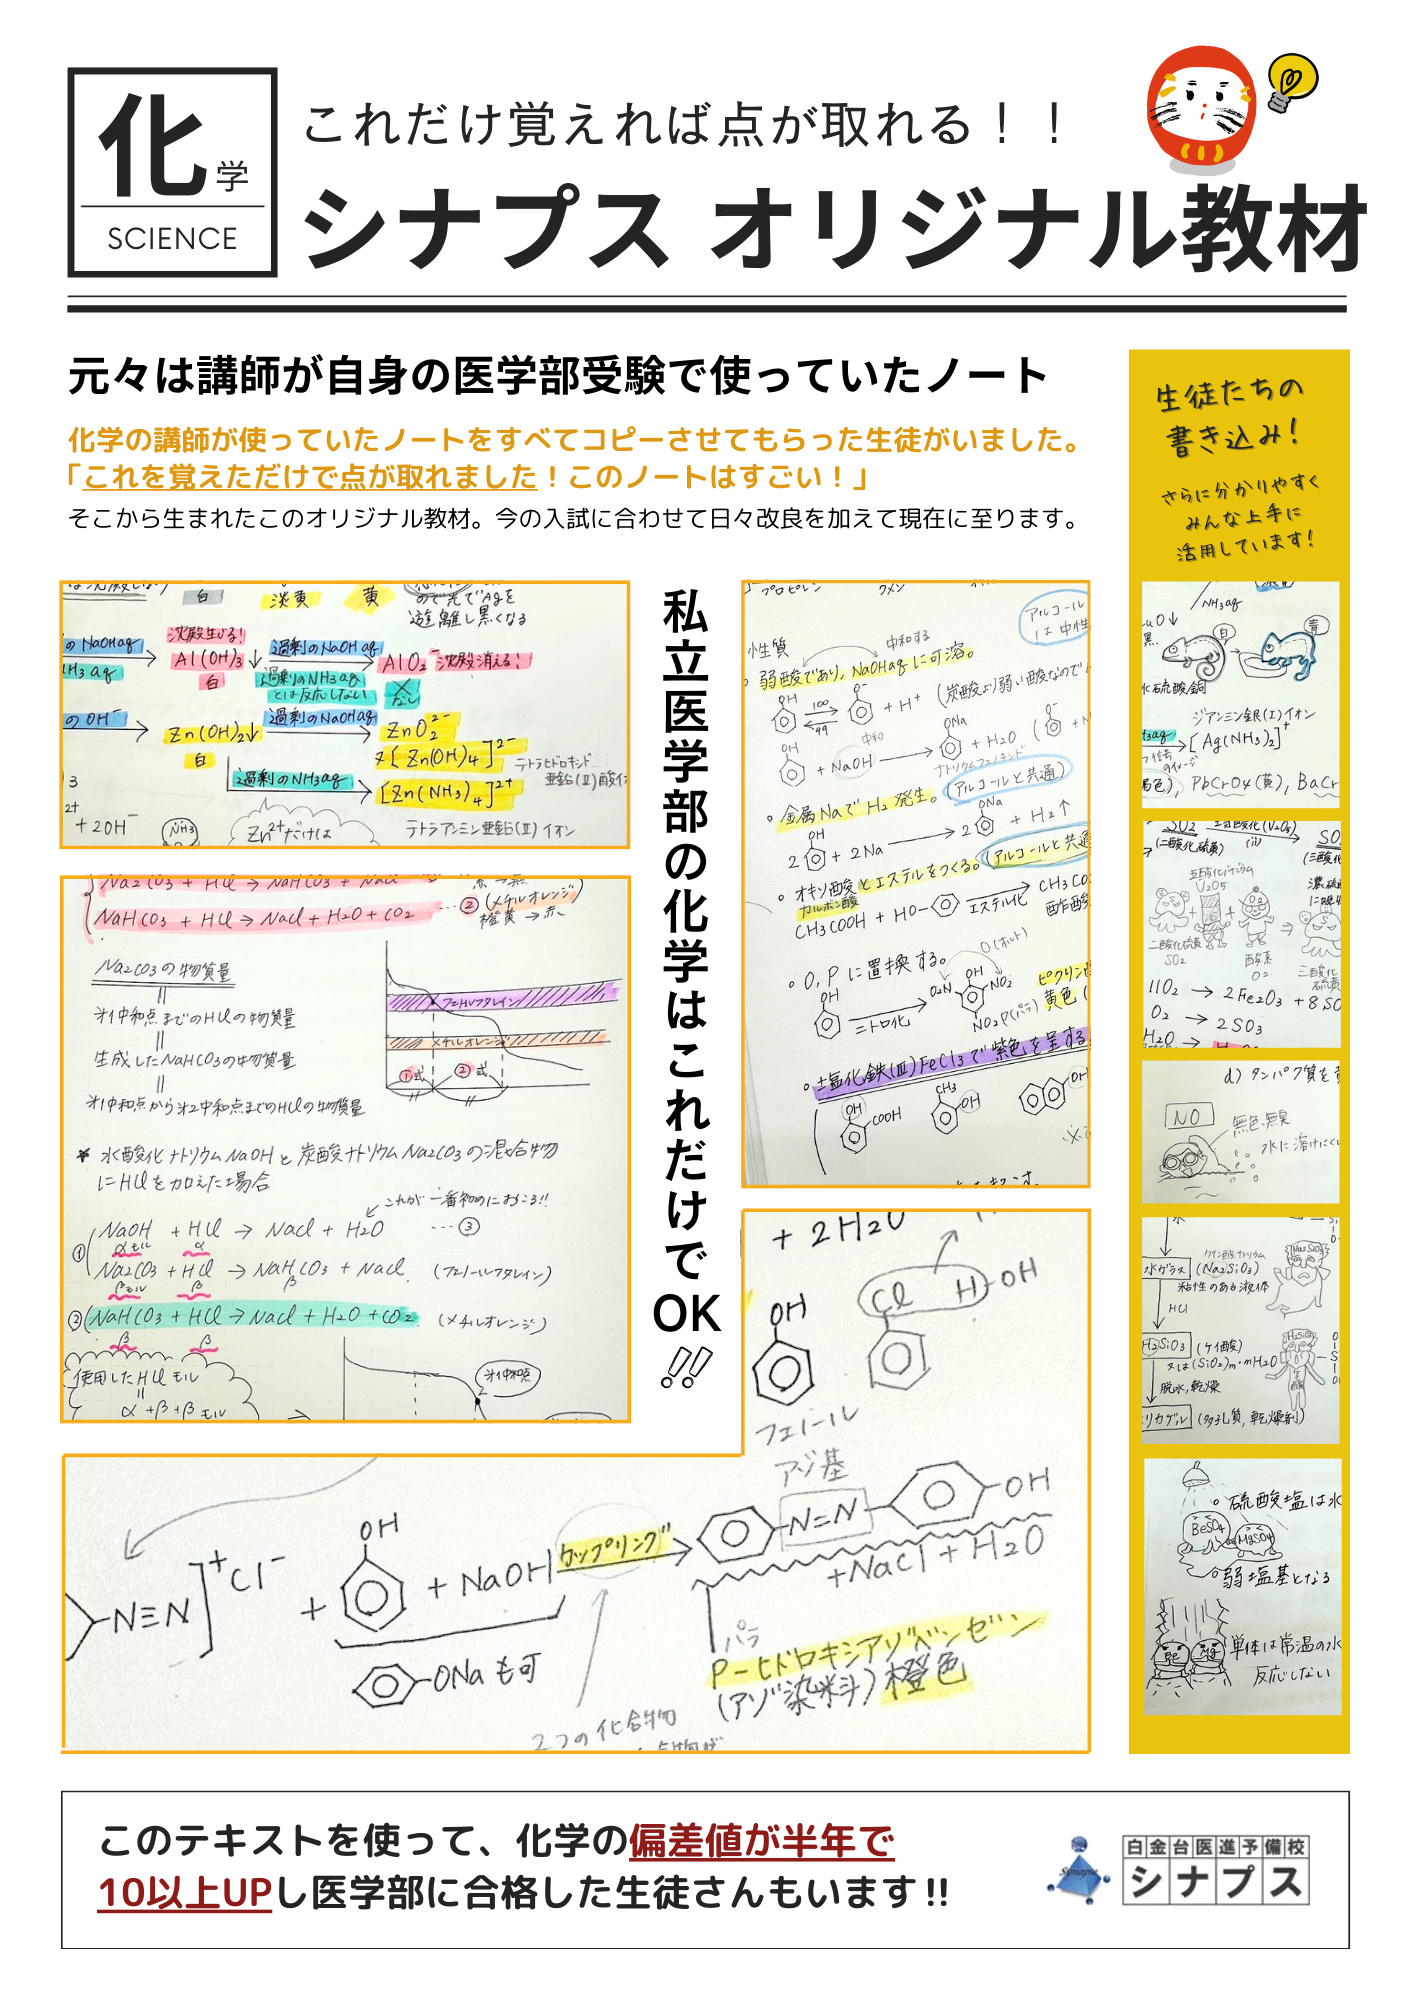 化学
SCIENCE
これだけ覚えれば点が取れる！！
シナプス オリジナル教材
元々は講師が自身の医学部受験で使っていたノート
化学の講師が使っていたノートをすべてコピーさせてもらった生徒がいました。
「これを覚えただけで点が取れました！このノートはすごい！」
そこから生まれたこのオリジナル教材。今の入試に合わせて日々改良を加えて現在に至ります。
白 淡黄 黄
ので光でAgを
遊離し黒くなる
のNaOHaq
沈殿生じる!
Al(OH)3↓
白
過剰のNaOHaq
AlO2⁻沈殿消える!
NH3aq
過剰のNH3aq
とは反応しない
なし
のOH⁻
Zn(OH)2↓
白
過剰のNaOHaq
ZnO2²⁻
[Zn(OH)4]²⁻
テトラヒドロキシド
亜鉛(Ⅱ)酸イ
過剰のNH3aq
[Zn(NH3)4]²⁺
テトラアンミン亜鉛(Ⅱ)イオン
+2OH⁻
NH3
Zn²⁺だけは
Na2CO3 + HCl → NaHCO3 + NaCl
NaHCO3 + HCl → NaCl + H2O + CO2 … ②
(メチルオレンジ)
橙黄→赤
Na2CO3の物質量
||
第1中和点までのHClの物質量
||
生成したNaHCO3の物質量
||
第1中和点から第2中和点までのHClの物質量
フェノールフタレイン
メチルオレンジ
①式 ②式
* 水酸化ナトリウムNaOHと炭酸ナトリウムNa2CO3の混合物
にHClを加えた場合
これが一番初めにおこる!!
① NaOH + HCl → NaCl + H2O …③
αモル α
Na2CO3 + HCl → NaHCO3 + NaCl (フェノールフタレイン)
βモル β β
② NaHCO3 + HCl → NaCl + H2O + CO2 (メチルオレンジ)
β β
使用したHClモル
||
α+β+βモル
第1中和点
私立医学部の化学はこれだけでOK!!
プロピレン クメン
アルコール
は中性
性質
中和する
弱酸であり、NaOHaqに可溶。
OH O⁻ + H⁺ (炭酸より弱い酸なので
OH + NaOH 中和 → ONa + H2O
ナトリウムフェノキシド
(アルコールと共通)
金属NaでH2発生。
2 OH + 2Na → 2 ONa + H2↑
オキソ酸とエステルをつくる。(アルコールと共通
カルボン酸
CH3COOH + HO- エステル化 → CH3CO
酢酸
O,Pに置換する。
O(オルト)
OH ニトロ化 → O2N OH NO2 NO2 P(パラ)
ピクリン
黄色(
塩化鉄(Ⅲ)FeCl3で紫色を呈する
OH COOH CH3 OH OH
+ 2H2O
OH
Cl H-OH
フェノール
アゾ基
-N≡N]⁺Cl⁻ + OH + NaOH カップリング → -N=N- -OH
+NaCl + H2O
-ONa も可
パラ
P-ヒドロキシアゾベンゼン
(アゾ染料) 橙色
2つの化合物
生徒たちの
書き込み!
さらに分かりやすく
みんな上手に
活用しています!
NH3aq
黒
白 青
硫酸銅
ジアンミン銀(Ⅰ)イオン
→[Ag(NH3)2]⁺
PbCrO4(黄), BaCr
SO2
(二酸化硫黄)
(V2O5)
(ii)
SO
(三酸化
V2O5
濃硫
二酸化硫黄
SO2
酸素
O2
三酸化
硫黄
11O2 → 2Fe2O3 + 8SO
O2 → 2SO3
H2O →
d) タンパク質を
NO
無色・無臭
水に溶けにくい
水ガラス (Na2SiO3)
ケイ酸ナトリウム
粘性のある液体
Na2SiO3
HCl
H2SiO3 (ケイ酸)
又は(SiO2)m・nH2O
脱水,乾燥
H2SiO3
リカゲル (多孔質,乾燥剤)
硫酸塩は水
BeSO4
MgSO4
弱塩基となる
Be Mg
単体は常温の水
反応しない
このテキストを使って、化学の偏差値が半年で
10以上UPし医学部に合格した生徒さんもいます!!
Synapse
白金台医進予備校
シナプス